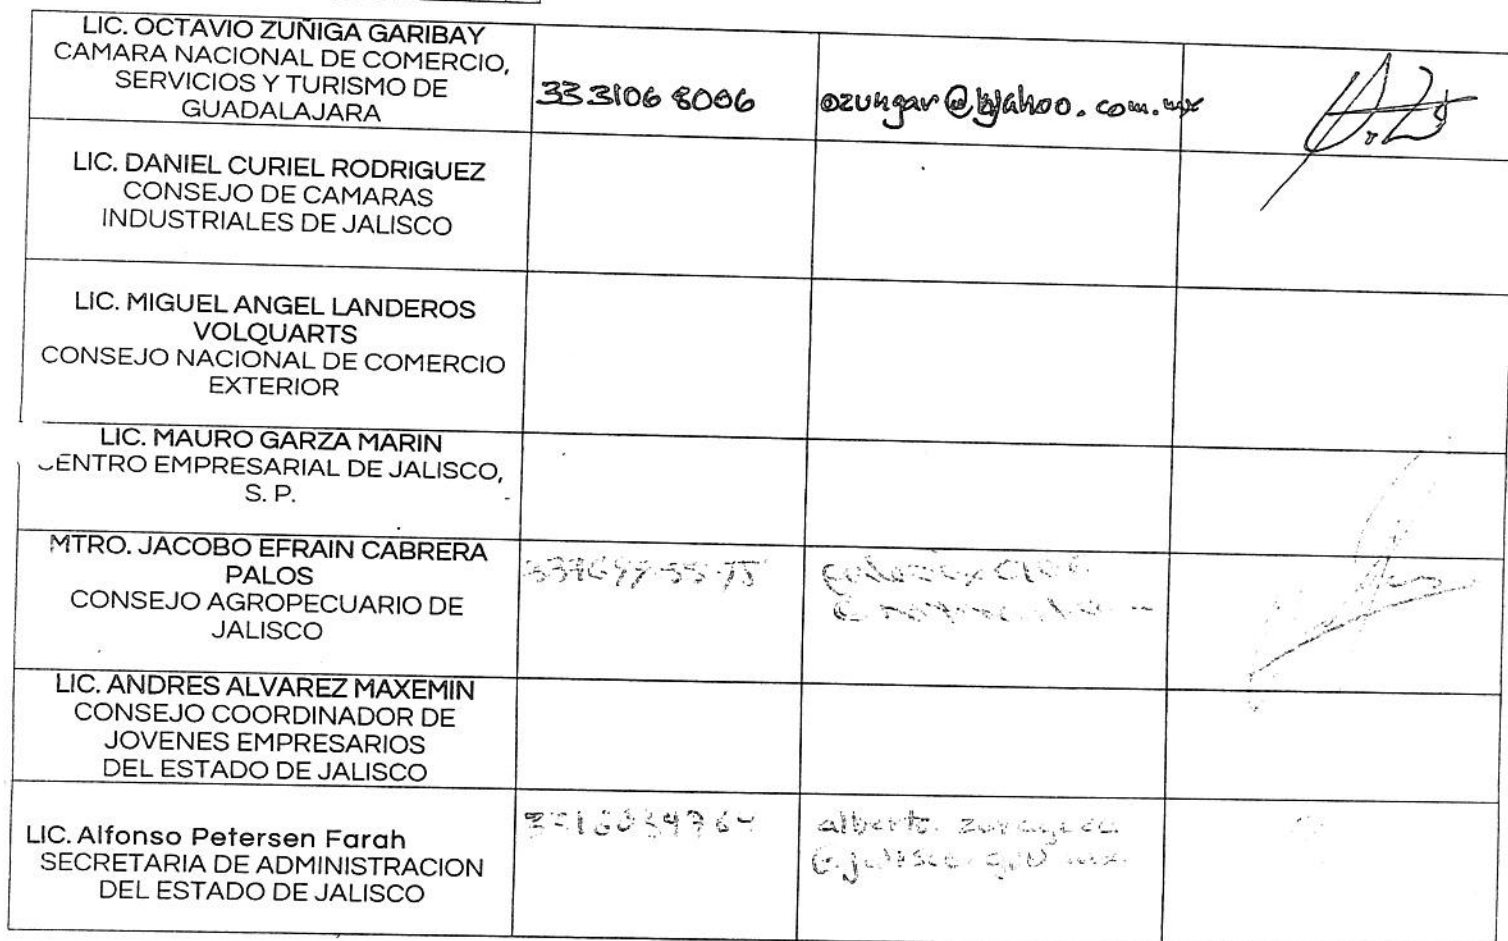 LIC. OCTAVIO ZUÑIGA GARIBAY
CAMARA NACIONAL DE COMERCIO,
SERVICIOS Y TURISMO DE
GUADALAJARA
33 3106 8006
ozungar@yahoo.com.mx
LIC. DANIEL CURIEL RODRIGUEZ
CONSEJO DE CAMARAS
INDUSTRIALES DE JALISCO
LIC. MIGUEL ANGEL LANDEROS
VOLQUARTS
CONSEJO NACIONAL DE COMERCIO
EXTERIOR
LIC. MAURO GARZA MARIN
CENTRO EMPRESARIAL DE JALISCO,
S. P.
MTRO. JACOBO EFRAIN CABRERA
PALOS
CONSEJO AGROPECUARIO DE
JALISCO
LIC. ANDRES ALVAREZ MAXEMIN
CONSEJO COORDINADOR DE
JOVENES EMPRESARIOS
DEL ESTADO DE JALISCO
LIC. Alfonso Petersen Farah
SECRETARIA DE ADMINISTRACION
DEL ESTADO DE JALISCO
alberto.